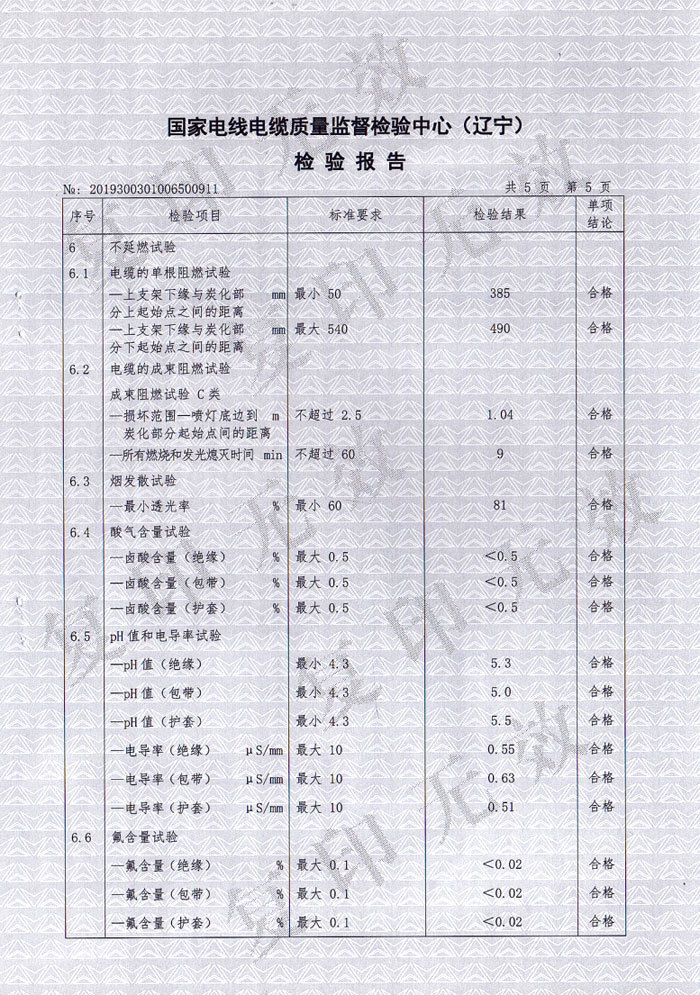 国家电线电缆质量监督检验中心（辽宁）
检 验 报 告
№: 2019300301006500911 共 5 页 第 5 页
序号 检验项目 标准要求 检验结果 单项结论
6 不延燃试验
6.1 电缆的单根阻燃试验
—上支架下缘与炭化部 mm 最小 50 385 合格
分上起始点之间的距离
—上支架下缘与炭化部 mm 最大 540 490 合格
分下起始点之间的距离
6.2 电缆的成束阻燃试验
成束阻燃试验 C 类
—损坏范围—喷灯底边到 m 不超过 2.5 1.04 合格
炭化部分起始点间的距离
—所有燃烧和发光熄灭时间 min 不超过 60 9 合格
6.3 烟发散试验
—最小透光率 % 最小 60 81 合格
6.4 酸气含量试验
—卤酸含量（绝缘） % 最大 0.5 <0.5 合格
—卤酸含量（包带） % 最大 0.5 <0.5 合格
—卤酸含量（护套） % 最大 0.5 <0.5 合格
6.5 pH 值和电导率试验
—pH 值（绝缘） 最小 4.3 5.3 合格
—pH 值（包带） 最小 4.3 5.0 合格
—pH 值（护套） 最小 4.3 5.5 合格
—电导率（绝缘） μS/mm 最大 10 0.55 合格
—电导率（包带） μS/mm 最大 10 0.63 合格
—电导率（护套） μS/mm 最大 10 0.51 合格
6.6 氟含量试验
—氟含量（绝缘） % 最大 0.1 <0.02 合格
—氟含量（包带） % 最大 0.1 <0.02 合格
—氟含量（护套） % 最大 0.1 <0.02 合格
复印无效
复印无效
复印无效
复印无效
复印无效